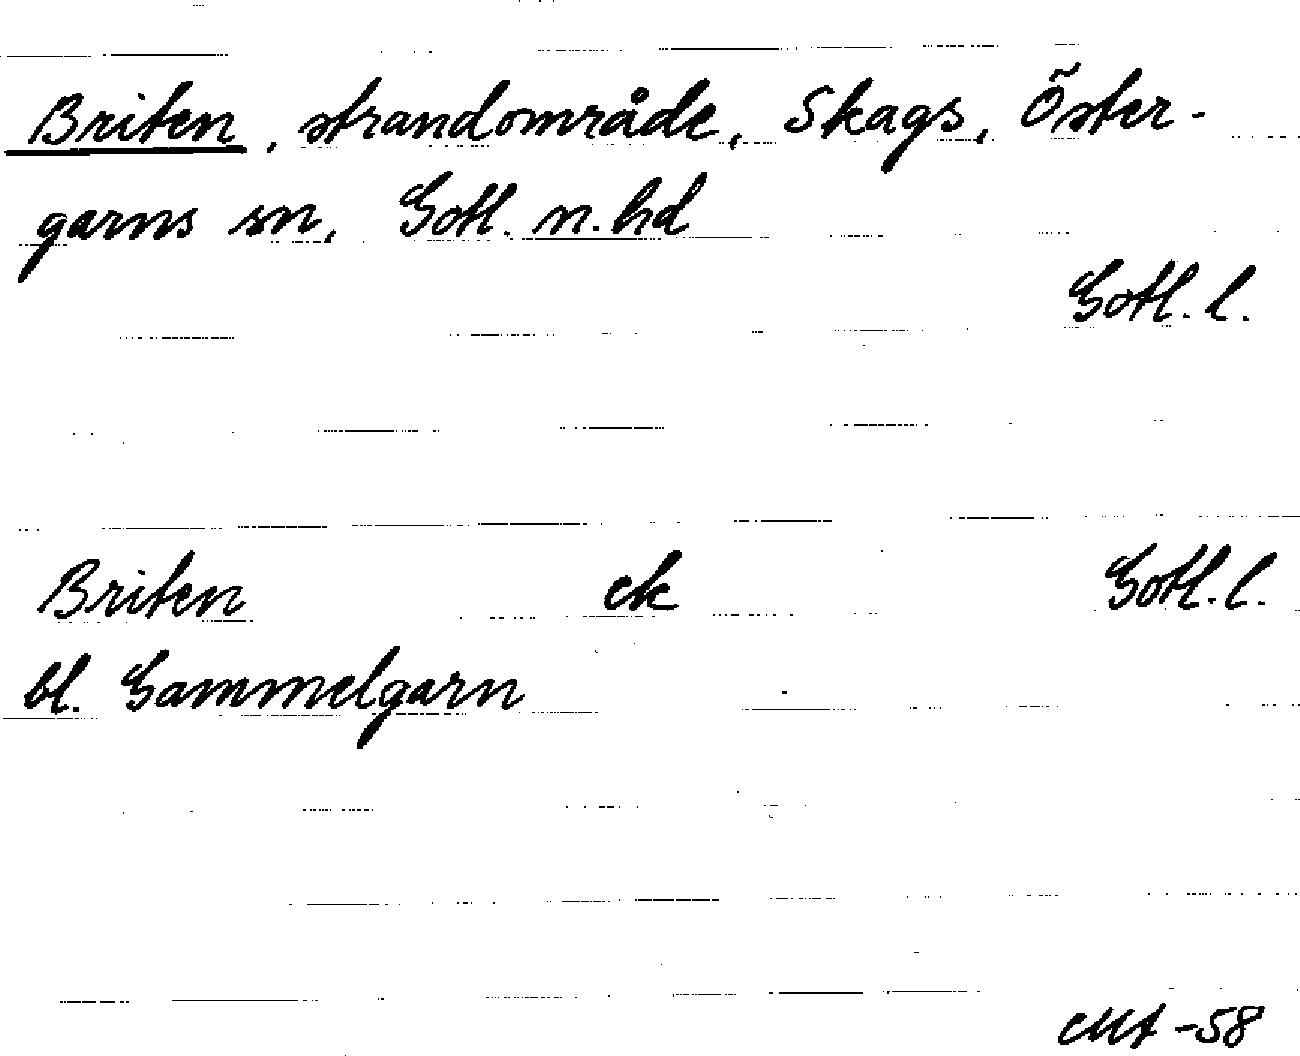 Briten, strandområde, Skags, Öster-
garns sn, Gotl. n. hd
Gotl. l.
Briten ek Gotl. l.
bl. Gammelgarn
-58